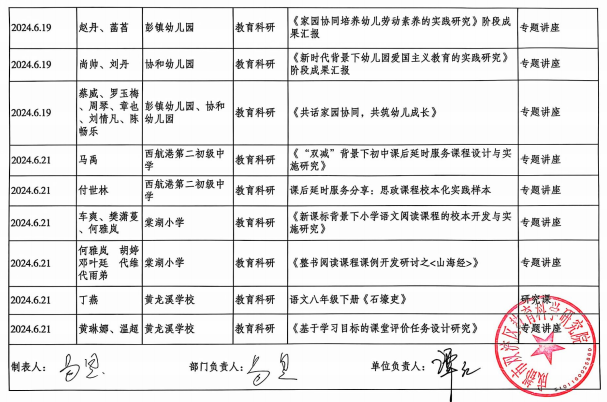 2024.6.19 赵丹、菡萏 彭镇幼儿园 教育科研 《家园协同培养幼儿劳动素养的实践研究》阶段成果汇报 专题讲座
2024.6.19 尚帅、刘丹 协和幼儿园 教育科研 《新时代背景下幼儿园爱国主义教育的实践研究》阶段成果汇报 专题讲座
2024.6.19 蔡威、罗玉梅、周琴、章也、刘情凡、陈畅乐 彭镇幼儿园、协和幼儿园 教育科研 《共话家园协同，共筑幼儿成长》 专题讲座
2024.6.21 马禹 西航港第二初级中学 教育科研 《“双减”背景下初中课后延时服务课程设计与实施研究》 专题讲座
2024.6.21 付世林 西航港第二初级中学 教育科研 课后延时服务分享：思政课程校本化实践样本 专题讲座
2024.6.21 车爽、樊潇蔓、何雅岚 棠湖小学 教育科研 《新课标背景下小学语文阅读课程的校本开发与实施研究》 专题讲座
2024.6.21 何雅岚 胡婷 邓叶廷 代维 代雨弟 棠湖小学 教育科研 《整书阅读课程课例开发研讨之<山海经>》 专题讲座
2024.6.21 丁燕 黄龙溪学校 教育科研 语文八年级下册《石壕吏》 研究课
2024.6.21 黄琳娜、温超 黄龙溪学校 教育科研 《基于学习目标的课堂评价任务设计研究》 专题讲座
制表人： 部门负责人： 单位负责人：
成都市双流区教育科学研究院